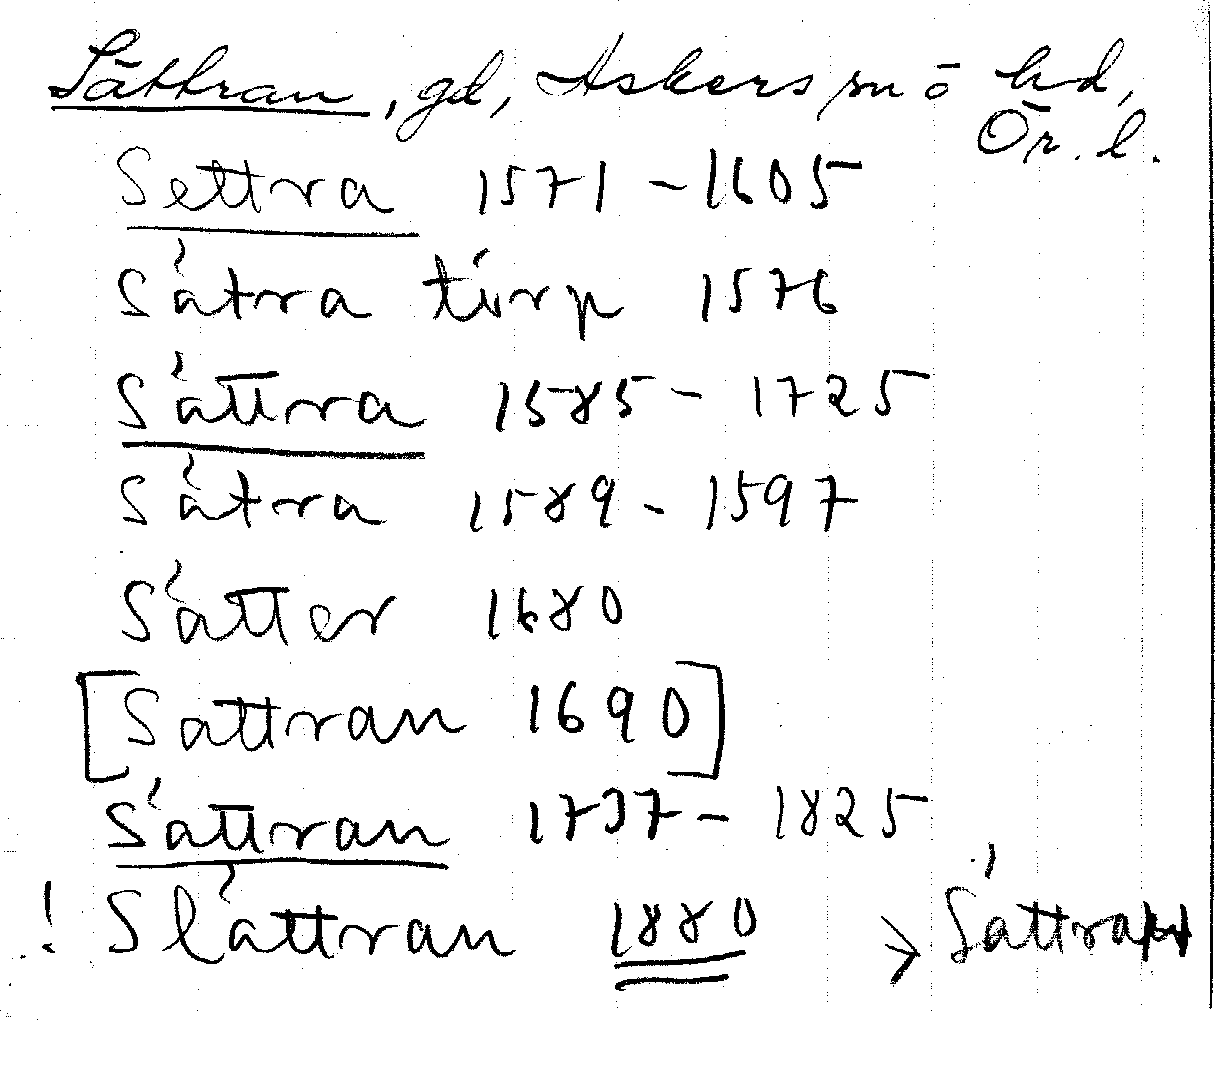 Sättran, gd, Askers sn ō hd,
Ör. l.
Settra 1571 - 1605
Sätra torp 1576
Sättra 1585 - 1725
Sätra 1589 - 1597
Sätter 1680
[Sattran 1690]
Sättran 1737 - 1825
! Slättran 1880 > Sättran